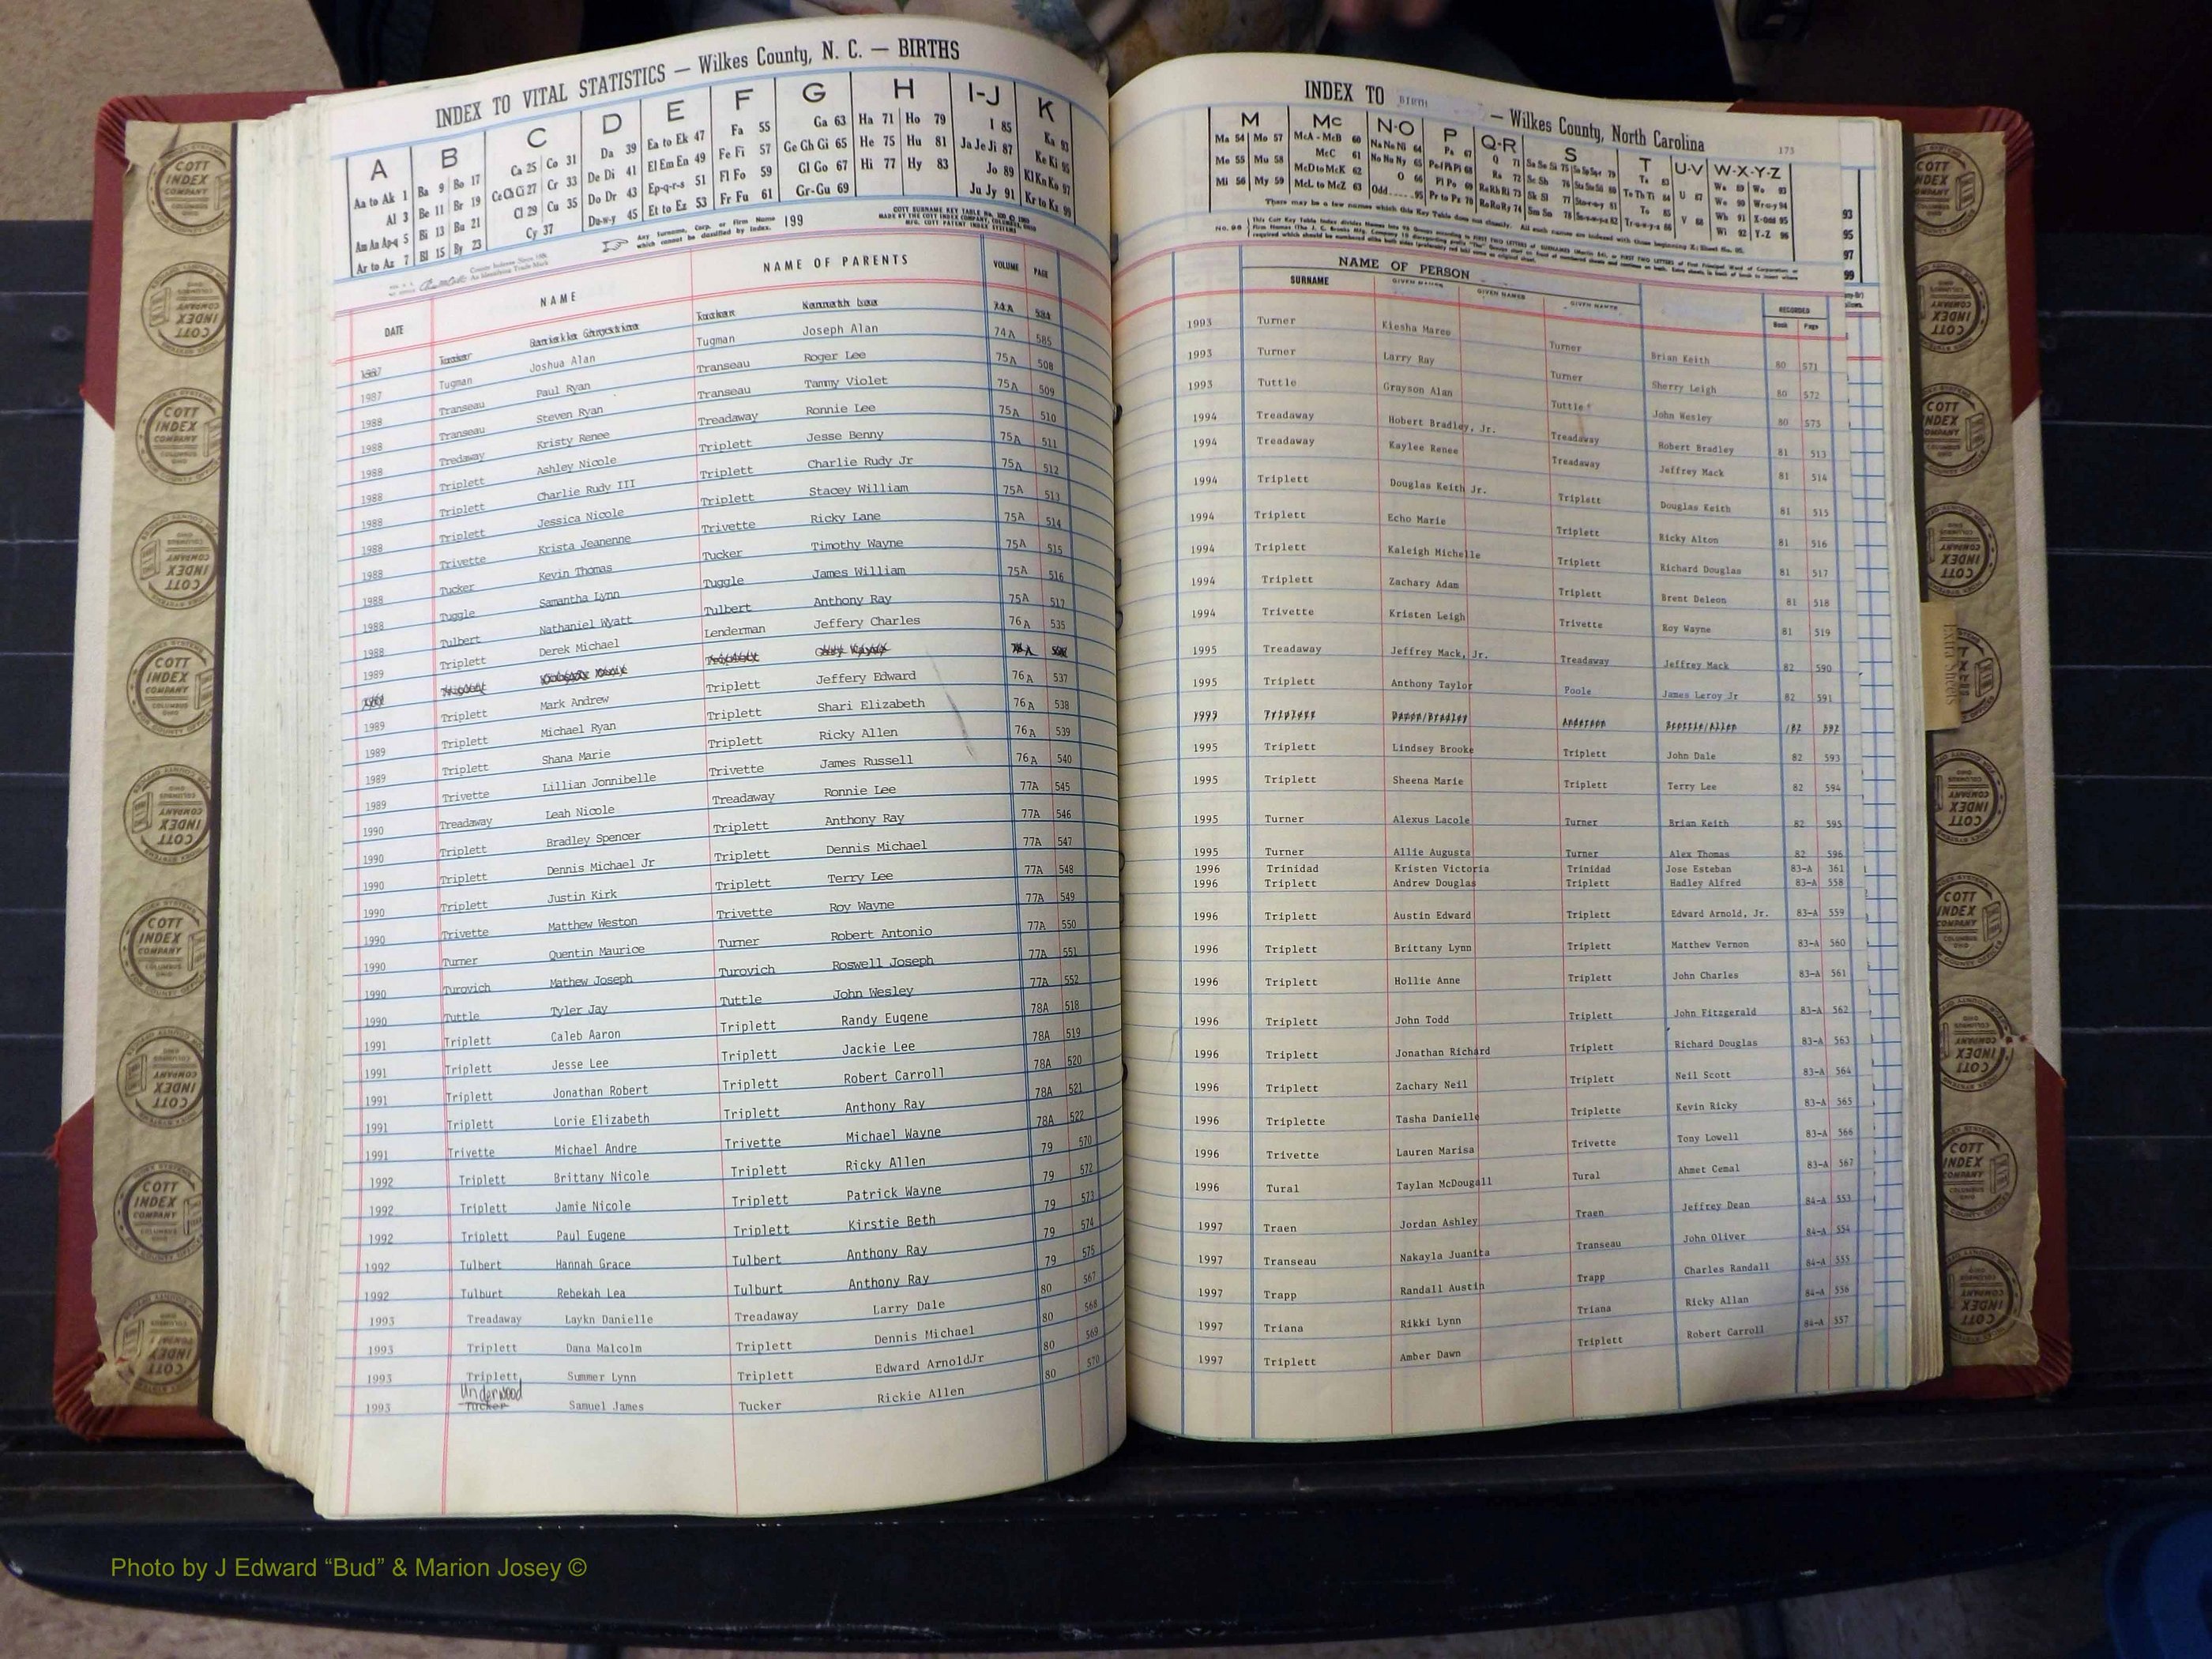 INDEX TO VITAL STATISTICS — Wilkes County, N. C. — BIRTHS
A B C D E F G H I-J K
Aa to Ak 1 Ba 9 Bo 17 Ca 25 Co 31 Da 39 Ea to Ek 47 Fa 55 Ga 63 Ha 71 Ho 79 I 85 Ka 93
Al 3 Be 11 Br 19 Ce Ch Ci 27 Cr 33 De Di 41 El Em En 49 Fe Fi 57 Ge Gh Gi 65 He 75 Hu 81 Ja Je Ji 87 Ke Ki 95
Am An Ap-q 5 Bi 13 Bu 21 Cl 29 Cu 35 Do Dr 43 Ep-q-r-s 51 Fl Fo 59 Gl Go 67 Hi 77 Hy 83 Jo 89 Kl Kn Ko 97
Ar to Az 7 Bl 15 By 23 Cy 37 Du-w-y 45 Et to Ez 53 Fr Fu 61 Gr-Gu 69 Ju Jy 91 Kr to Kz 99
Any Surname, Corp. or Firm Name which cannot be classified by index. 199
COTT SURNAME KEY TABLE
MADE BY THE COTT INDEX COMPANY, COLUMBUS, OHIO
MFG. COTT PATENT INDEX SYSTEMS
DATE NAME NAME OF PARENTS VOLUME PAGE
1987 Kenneth Lee 74A
1987 Tugman Joshua Alan Tugman Joseph Alan 74A 585
1988 Transeau Paul Ryan Transeau Roger Lee 75A 508
1988 Transeau Steven Ryan Transeau Tammy Violet 75A 509
1988 Tredaway Kristy Renee Treadaway Ronnie Lee 75A 510
1988 Triplett Ashley Nicole Triplett Jesse Benny 75A 511
1988 Triplett Charlie Rudy III Triplett Charlie Rudy Jr 75A 512
Triplett Jessica Nicole Triplett Stacey William 75A 513
1988 Trivette Krista Jeanenne Trivette Ricky Lane 75A 514
1988 Tucker Kevin Thomas Tucker Timothy Wayne 75A 515
1988 Tuggle Samantha Lynn Tuggle James William 75A 516
1988 Tulbert Nathaniel Wyatt Tulbert Anthony Ray 75A 517
1989 Triplett Derek Michael Lenderman Jeffery Charles 76A 535
1989 Triplett Mark Andrew Triplett Jeffery Edward 76A 537
1989 Triplett Michael Ryan Triplett Shari Elizabeth 76A 538
1989 Triplett Shana Marie Triplett Ricky Allen 76A 539
1989 Trivette Lillian Jonnibelle Trivette James Russell 76A 540
1990 Treadaway Leah Nicole Treadaway Ronnie Lee 77A 545
1990 Triplett Bradley Spencer Triplett Anthony Ray 77A 546
1990 Triplett Dennis Michael Jr Triplett Dennis Michael 77A 547
1990 Triplett Justin Kirk Triplett Terry Lee 77A 548
1990 Trivette Matthew Weston Trivette Roy Wayne 77A 549
1990 Turner Quentin Maurice Turner Robert Antonio 77A 550
1990 Turovich Mathew Joseph Turovich Roswell Joseph 77A 551
1990 Tuttle Tyler Jay Tuttle John Wesley 77A 552
1991 Triplett Caleb Aaron Triplett Randy Eugene 78A 518
1991 Triplett Jesse Lee Triplett Jackie Lee 78A 519
1991 Triplett Jonathan Robert Triplett Robert Carroll 78A 520
1991 Triplett Lorie Elizabeth Triplett Anthony Ray 78A 521
1991 Trivette Michael Andre Trivette Michael Wayne 78A 522
1992 Triplett Brittany Nicole Triplett Ricky Allen 79 570
1992 Triplett Jamie Nicole Triplett Patrick Wayne 79 572
1992 Triplett Paul Eugene Triplett Kirstie Beth 79 573
1992 Tulbert Hannah Grace Tulbert Anthony Ray 79 574
1992 Tulburt Rebekah Lea Tulburt Anthony Ray 79 575
1993 Treadaway Laykn Danielle Treadaway Larry Dale 80 567
1993 Triplett Dana Malcolm Triplett Dennis Michael 80 568
1993 Triplett Summer Lynn Triplett Edward ArnoldJr 80 569
Underwood
1993 Tucker Samuel James Tucker Rickie Allen 80 570
INDEX TO BIRTH — Wilkes County, North Carolina
173
M Mc N-O P Q-R S T U-V W-X-Y-Z
Ma 54 Mo 57 McA - McB 60 Na Ne Ni 64 Pa 67 Q 71
Me 55 Mu 58 McC 61 No Nu Ny 65 Ra 72
Mi 56 My 59 McD to McK 62 O 66 Pl Po 69 Ra Rh Ri 73
McL to McZ 63 Odd 95 Pr to Pz 70
NAME OF PERSON
SURNAME GIVEN NAMES GIVEN NAMES GIVEN NAMES RECORDED
Book Page
1993 Turner Kiesha Maree Turner Brian Keith 80 571
1993 Turner Larry Ray Turner Sherry Leigh 80 572
1993 Tuttle Grayson Alan Tuttle John Wesley 80 573
1994 Treadaway Hobert Bradley, Jr. Treadaway Robert Bradley 81 513
1994 Treadaway Kaylee Renee Treadaway Jeffrey Mack 81 514
1994 Triplett Douglas Keith Jr. Triplett Douglas Keith 81 515
1994 Triplett Echo Marie Triplett Ricky Alton 81 516
1994 Triplett Kaleigh Michelle Triplett Richard Douglas 81 517
1994 Triplett Zachary Adam Triplett Brent Deleon 81 518
1994 Trivette Kristen Leigh Trivette Roy Wayne 81 519
1995 Treadaway Jeffrey Mack, Jr. Treadaway Jeffrey Mack 82 590
1995 Triplett Anthony Taylor Poole James Leroy Jr 82 591
1995 Triplett Bradley Anderson Allen 82 592
1995 Triplett Lindsey Brooke Triplett John Dale 82 593
1995 Triplett Sheena Marie Triplett Terry Lee 82 594
1995 Turner Alexus Lacole Turner Brian Keith 82 595
1995 Turner Allie Augusta Turner Alex Thomas 82 596
1996 Trinidad Kristen Victoria Trinidad Jose Esteban 83-A 361
1996 Triplett Andrew Douglas Triplett Hadley Alfred 83-A 558
1996 Triplett Austin Edward Triplett Edward Arnold, Jr. 83-A 559
1996 Triplett Brittany Lynn Triplett Matthew Vernon 83-A 560
1996 Triplett Hollie Anne Triplett John Charles 83-A 561
1996 Triplett John Todd Triplett John Fitzgerald 83-A 562
1996 Triplett Jonathan Richard Triplett Richard Douglas 83-A 563
1996 Triplett Zachary Neil Triplett Neil Scott 83-A 564
1996 Triplette Tasha Danielle Triplette Kevin Ricky 83-A 565
1996 Trivette Lauren Marisa Trivette Tony Lowell 83-A 566
1996 Tural Taylan McDougall Tural Ahmet Cemal 83-A 567
1997 Traen Jordan Ashley Traen Jeffrey Dean 84-A 553
1997 Transeau Nakayla Juanita Transeau John Oliver 84-A 554
1997 Trapp Randall Austin Trapp Charles Randall 84-A 555
1997 Triana Rikki Lynn Triana Ricky Allan 84-A 556
1997 Triplett Amber Dawn Triplett Robert Carroll 84-A 557
93
95
97
99
Extra Sheets
COTT INDEX COMPANY COLUMBUS OHIO
Photo by J Edward “Bud” & Marion Josey ©